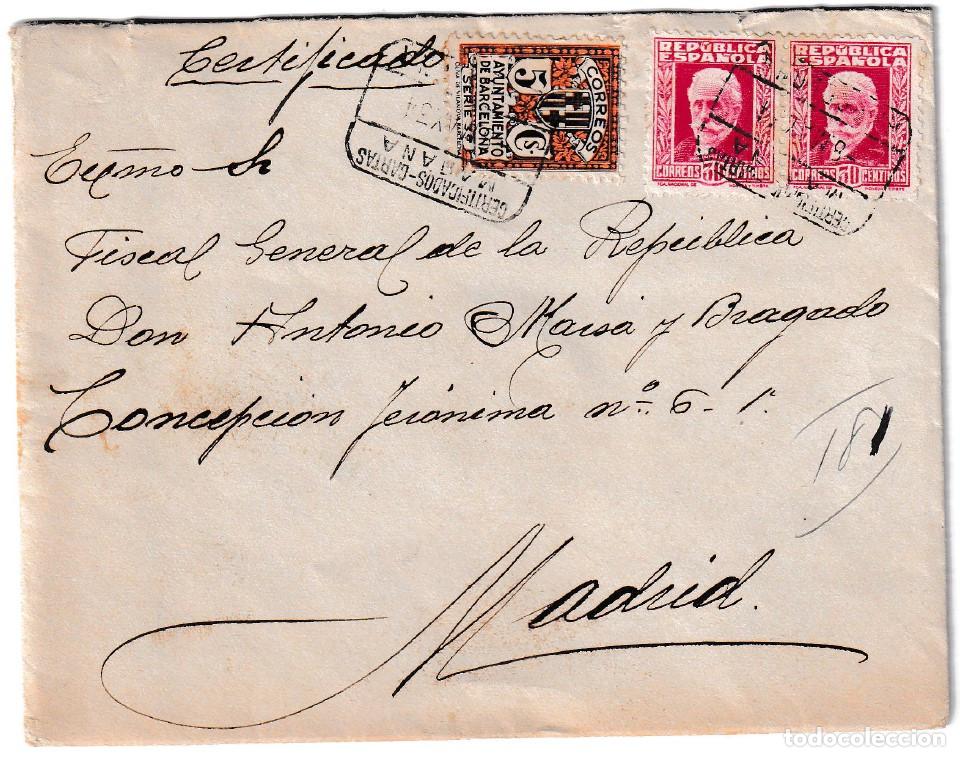 Certificado
CORREOS
5 Cs
AYUNTAMIENTO
DE BARCELONA
SERIE 9ª
CERTIFICADOS-CARTAS
MAÑANA
REPÚBLICA
ESPAÑOLA
CORREOS 30 CÉNTIMOS
REPÚBLICA
ESPAÑOLA
CORREOS 30 CÉNTIMOS
Exmo Sr
Fiscal General de la República
Don Antonio Marsá y Bragado
Concepcion Jerónima nº 6-1º
181
Madrid.
todocoleccion